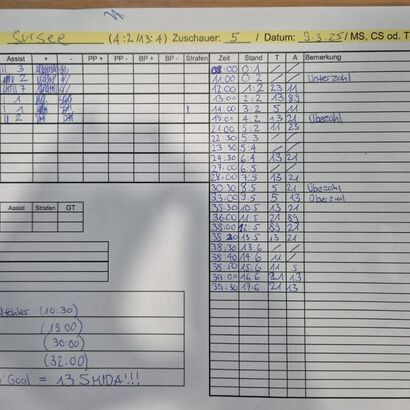 Sursee (4:2/13:4) Zuschauer: 5 / Datum: 9.3.25 / MS, CS od. T
Assist + - PP + PP - BP + BP - Strafen
3
2
7
1
1
2
Assist Strafen GT
(10:30)
(19:00)
(30:00)
(32:00)
Goal = 13 SMIDA!!!
Zeit Stand T A Bemerkung
08:00 0:1 / /
11:00 0:2 / / Unterzahl
12:00 1:2 23 11
13:00 2:2 13 89
14:00 3:2 5 11
19:00 4:2 13 21 Überzahl
21:00 5:2 11 23
22:30 5:3 / /
23:30 5:4 / /
24:30 6:4 13 21
27:00 6:5 / /
28:00 7:5 13 21
30:30 8:5 5 21 Überzahl
33:00 9:5 5 13 Überzahl
35:30 10:5 13 21
36:00 11:5 21 89
38:00 12:5 89 21
38:20 13:5 13 21
38:30 13:6 / /
38:40 14:6 11 /
38:50 15:6 11 5
39:00 16:6 21 13
39:30 17:6 21 13